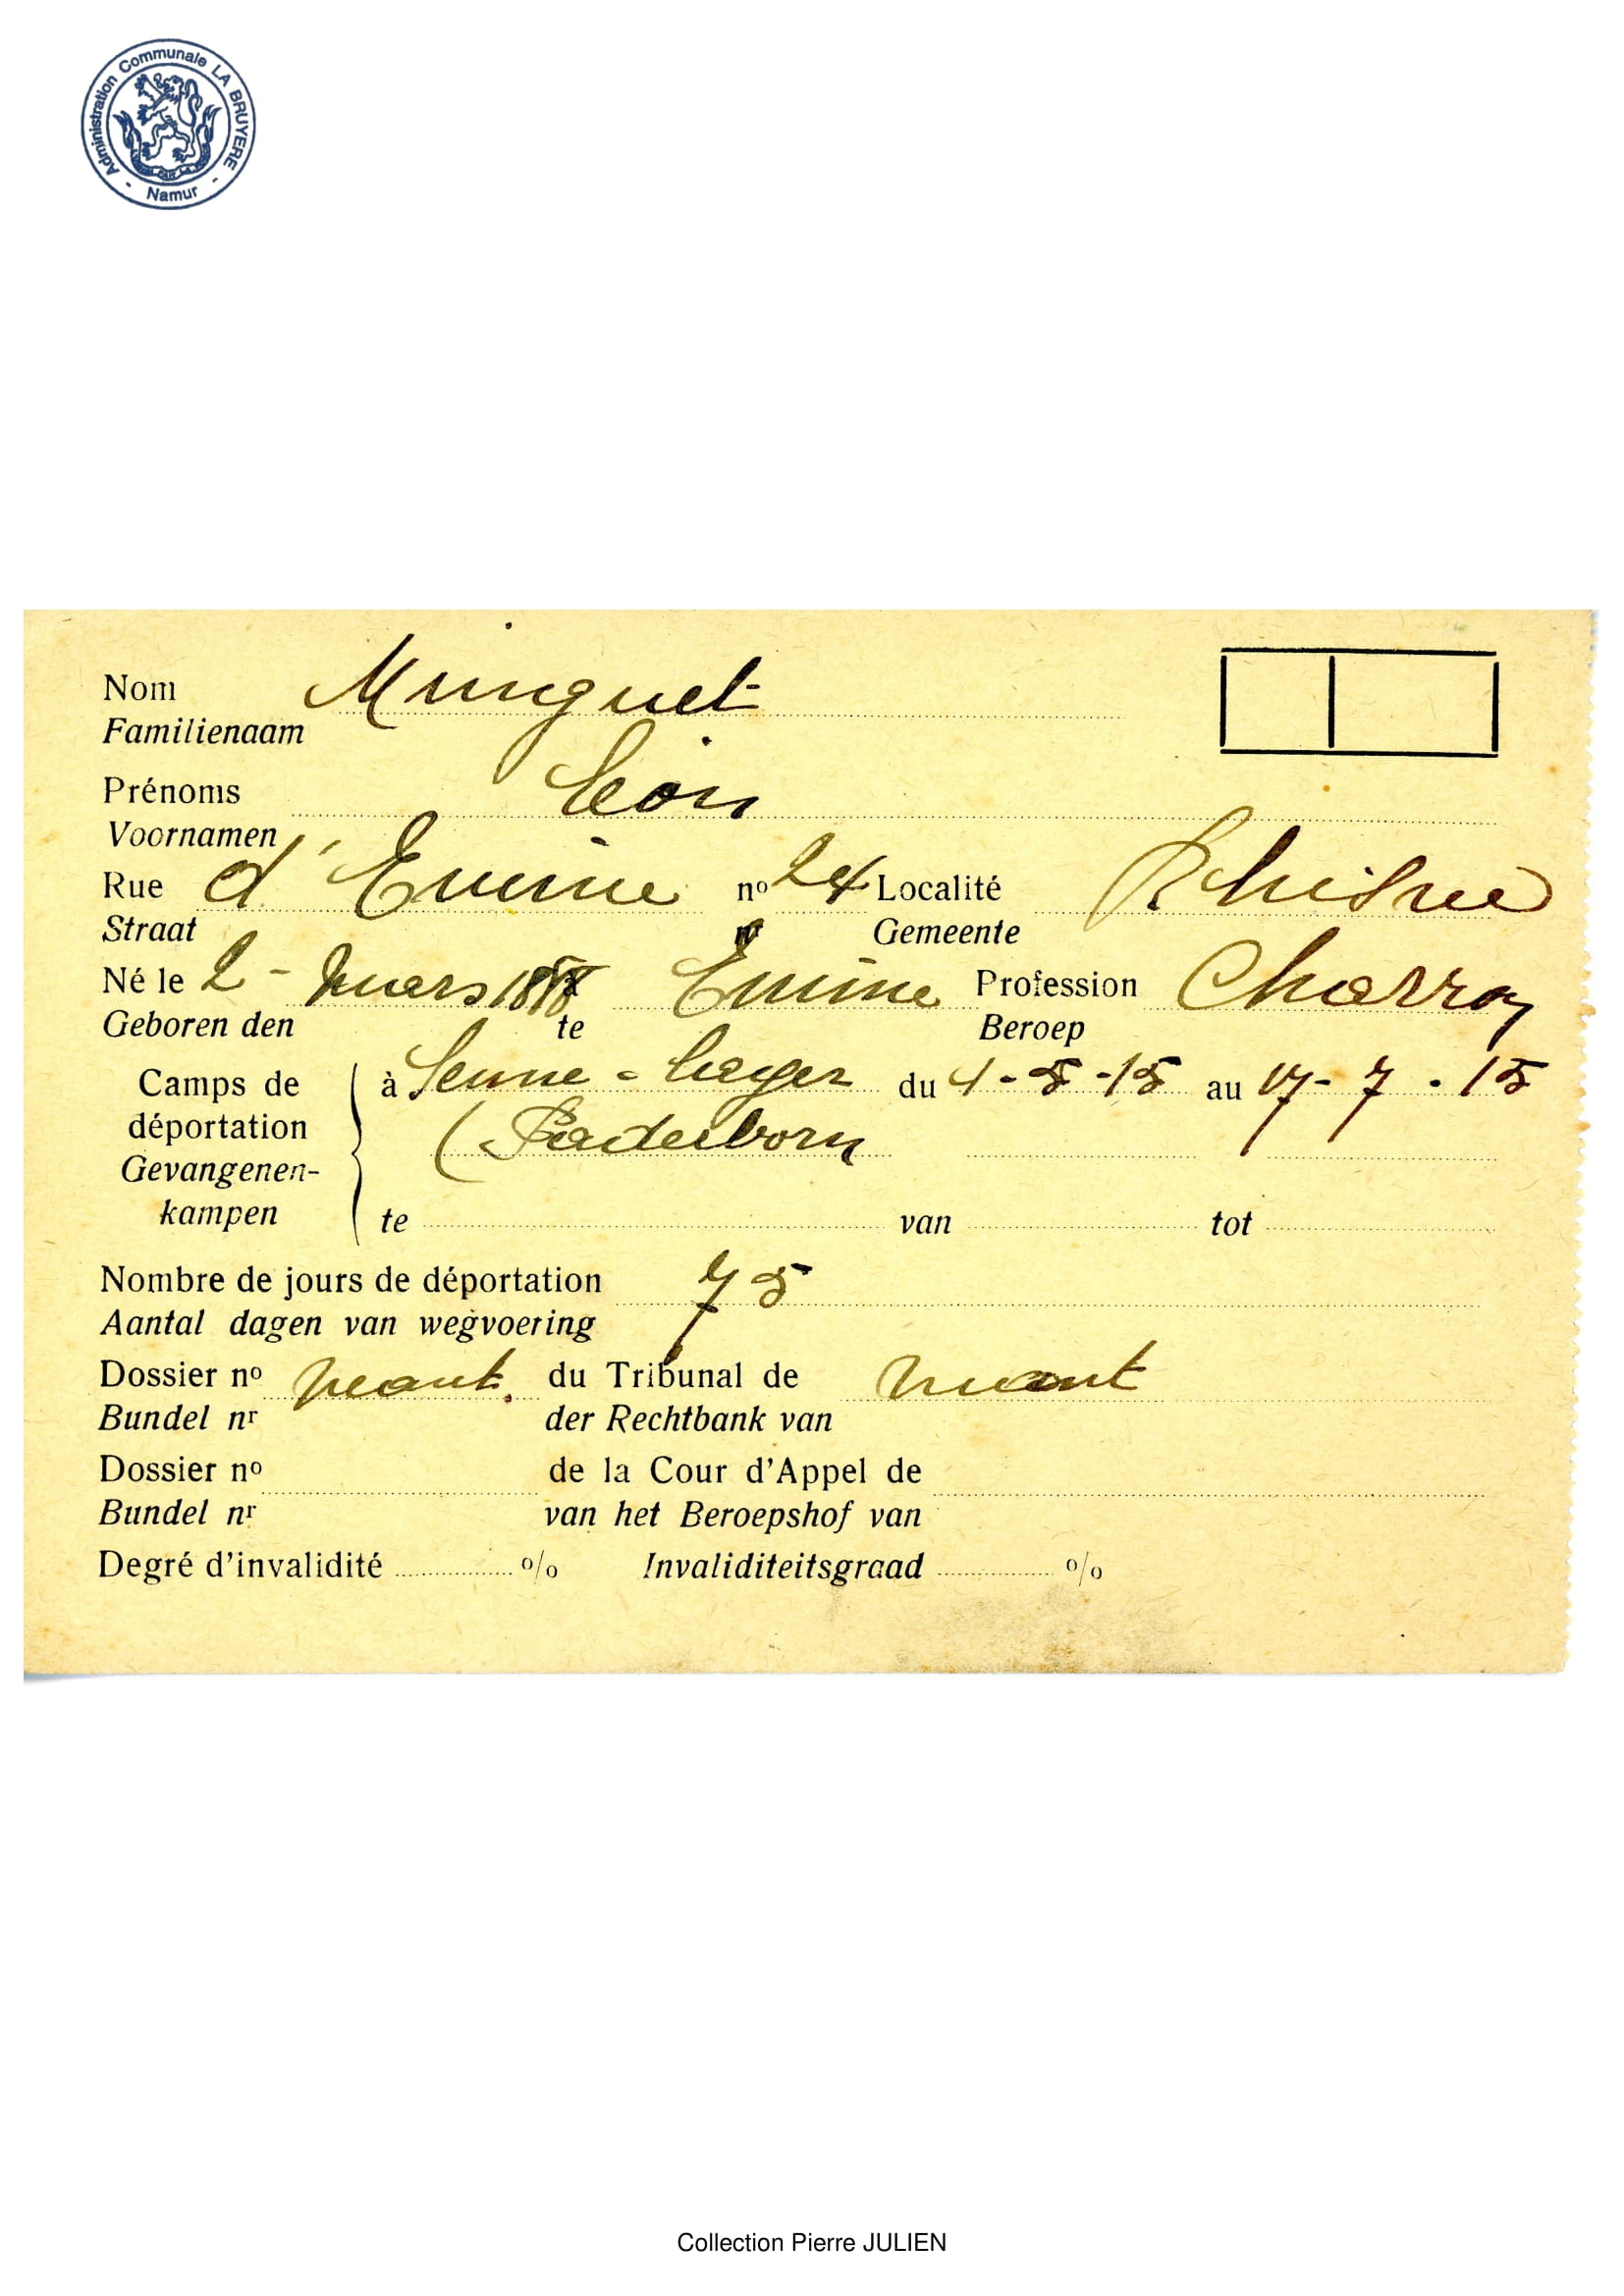 Administration Communale LA BRUYERE - Namur -
Nom Minguet
Familienaam
Prénoms Léon
Voornamen
Rue d'Emine nº 24 Localité Rhisne
Straat Gemeente
Né le 2 - mars Emine Profession Charron
Geboren den te Beroep
Camps de à Senne-Lager du 4-5-15 au 17-7-15
déportation (Paderborn
Gevangenen-
kampen te van tot
Nombre de jours de déportation 75
Aantal dagen van wegvoering
Dossier nº néant. du Tribunal de néant
Bundel nr der Rechtbank van
Dossier nº de la Cour d'Appel de
Bundel nr van het Beroepshof van
Degré d'invalidité % Invaliditeitsgraad %
Collection Pierre JULIEN